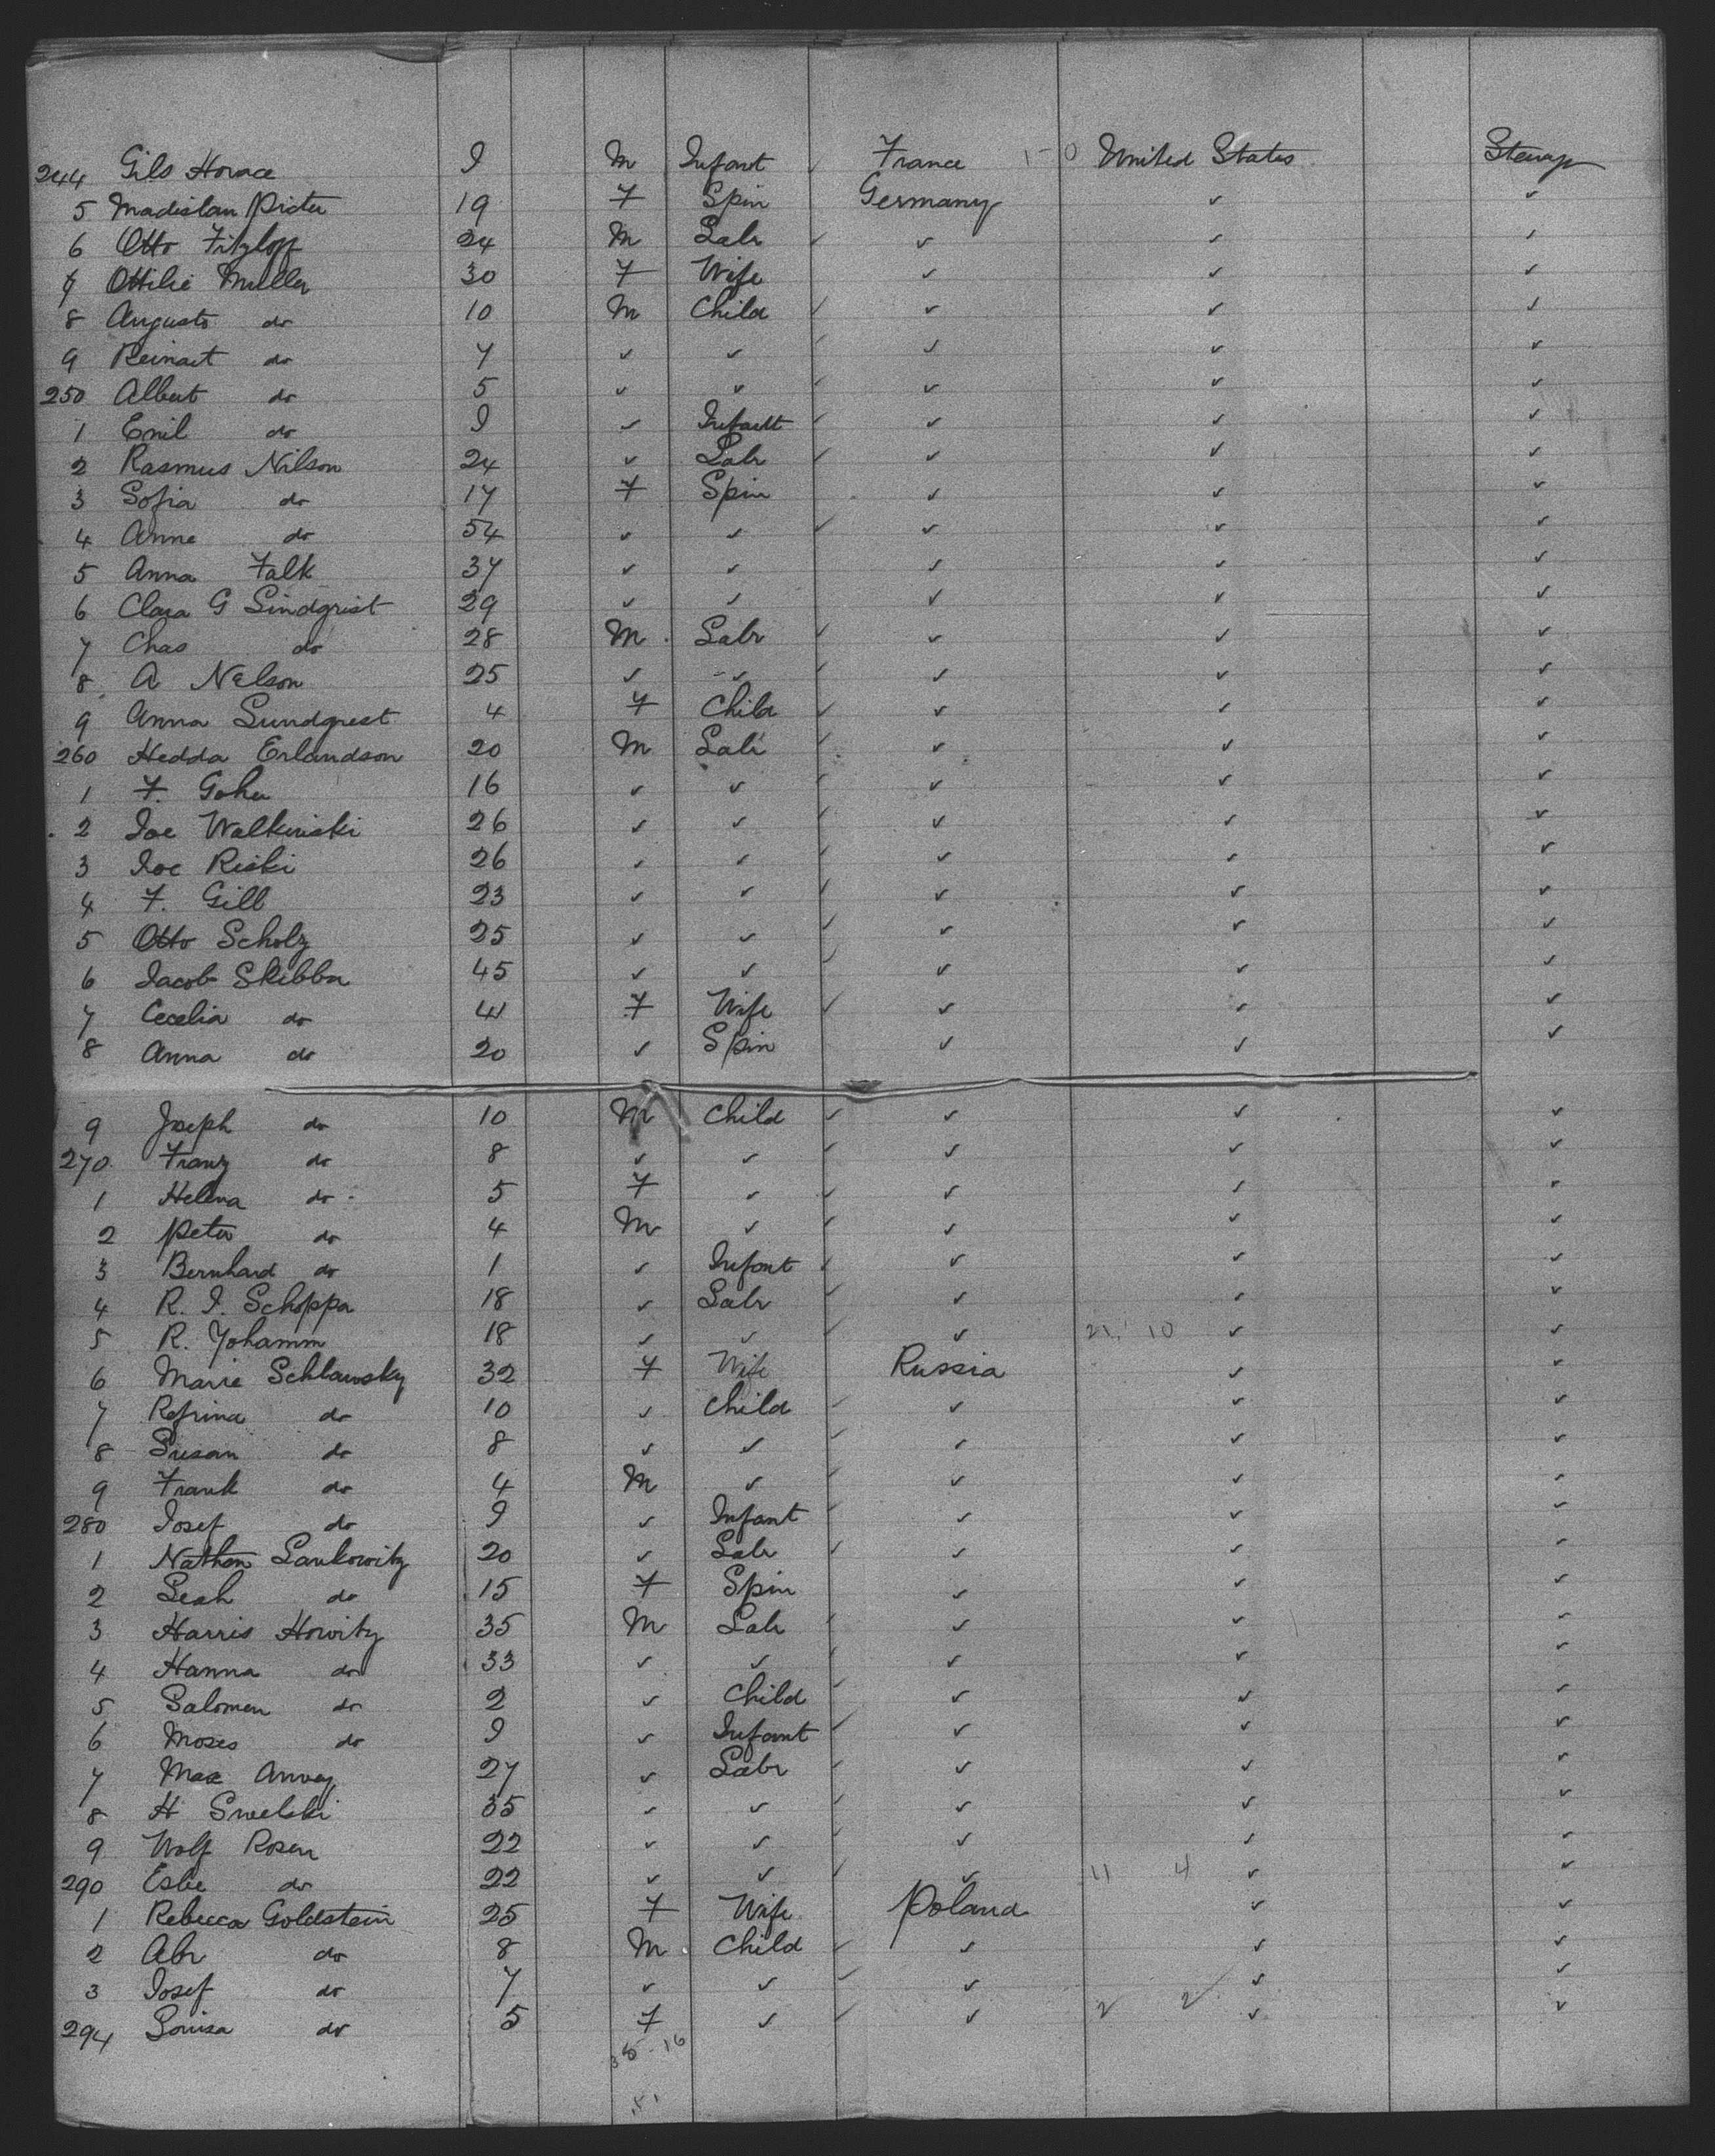 244 Gils Horace I M Infant ✓ France 1-0 United States Steerage
5 Madislan Pictu 19 F Spin Germany ✓ ✓
6 Otto Fitzloff 24 M Labr ✓ ✓ ✓ ✓
7 Ottilie Muller 30 F Wife ✓ ✓ ✓
8 Auguste do 10 M Child ✓ ✓ ✓ ✓
9 Reinart do 7 ✓ ✓ ✓ ✓ ✓ ✓
250 Albert do 5 ✓ ✓ ✓ ✓ ✓ ✓
1 Emil do I ✓ Infant ✓ ✓ ✓ ✓
2 Rasmus Nilson 24 ✓ Labr ✓ ✓ ✓ ✓
3 Sofia do 17 F Spin ✓ ✓ ✓
4 Anne do 54 ✓ ✓ ✓ ✓ ✓ ✓
5 Anna Falk 37 ✓ ✓ ✓ ✓ ✓
6 Clara G Lindgrist 29 ✓ ✓ ✓ ✓ ✓
7 Chas do 28 M Labr ✓ ✓ ✓ ✓
8 A Nelson 25 ✓ ✓ ✓ ✓ ✓ ✓
9 Anna Lundquest 4 F Child ✓ ✓ ✓ ✓
260 Hedda Erlandson 20 M Labr ✓ ✓ ✓ ✓
1 F. Goher 16 ✓ ✓ ✓ ✓ ✓ ✓
2 Joe Walkwiski 26 ✓ ✓ ✓ ✓ ✓ ✓
3 Joe Riski 26 ✓ ✓ ✓ ✓ ✓ ✓
4 F. Gill 23 ✓ ✓ ✓ ✓ ✓ ✓
5 Otto Scholz 25 ✓ ✓ ✓ ✓ ✓ ✓
6 Jacob Skibba 45 ✓ ✓ ✓ ✓ ✓ ✓
7 Cecelia do 41 F Wife ✓ ✓ ✓ ✓
8 Anna do 20 ✓ Spin ✓ ✓ ✓
9 Joseph do 10 M Child ✓ ✓ ✓ ✓
270 Franz do 8 ✓ ✓ ✓ ✓ ✓ ✓
1 Helena do 5 F ✓ ✓ ✓ ✓ ✓
2 Peter do 4 M ✓ ✓ ✓ ✓ ✓
3 Bernhard do 1 ✓ Infant ✓ ✓ ✓ ✓
4 R. I. Schoppa 18 ✓ Labr ✓ ✓ ✓ ✓
5 R. Yohamm 18 ✓ ✓ ✓ ✓ 21 10 ✓ ✓
6 Marie Schlawsky 32 F Wife Russia ✓ ✓
7 Rofrina do 10 ✓ Child ✓ ✓ ✓ ✓
8 Susan do 8 ✓ ✓ ✓ ✓ ✓ ✓
9 Frank do 4 M ✓ ✓ ✓ ✓ ✓
280 Josef do I ✓ Infant ✓ ✓ ✓ ✓
1 Nathan Lankowitz 20 ✓ Labr ✓ ✓ ✓ ✓
2 Leah do 15 F Spin ✓ ✓ ✓
3 Harris Howitz 35 M Labr ✓ ✓ ✓ ✓
4 Hanna do 33 ✓ ✓ ✓ ✓ ✓ ✓
5 Salomen do 2 ✓ Child ✓ ✓ ✓ ✓
6 Moses do I ✓ Infant ✓ ✓ ✓ ✓
7 Max 27 ✓ Labr ✓ ✓ ✓ ✓
8 H Swelski 35 ✓ ✓ ✓ ✓ ✓ ✓
9 Wolf Rosen 22 ✓ ✓ ✓ ✓ ✓ ✓
290 Eslie do 22 ✓ ✓ ✓ ✓ 11 4 ✓ ✓
1 Rebecca Goldstein 25 F Wife Poland ✓ ✓
2 Abr do 8 M Child ✓ ✓ ✓ ✓
3 Josef do 7 ✓ ✓ ✓ ✓ ✓ ✓
294 Louisa do 5 F ✓ ✓ ✓ 2 2 ✓ ✓
35-16